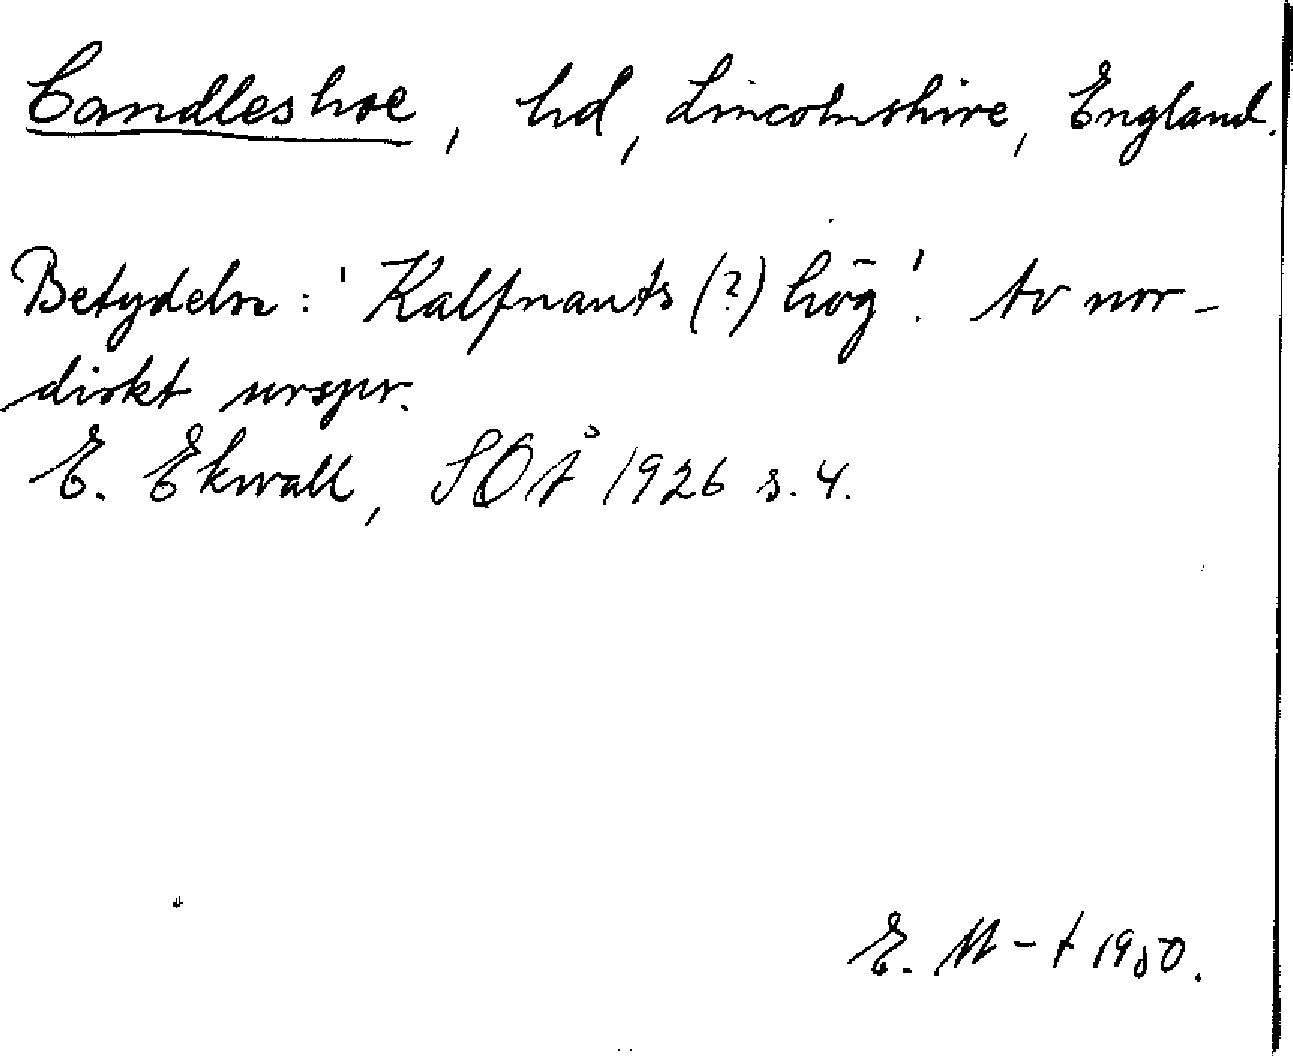 Candleshoe, hd, Lincolnshire, England.
Betydelse: 'Kalfnants (?) hög'. Av nor-
diskt urspr.
E. Ekwall, SOÅ 1926 s. 4.
E. M-t 1950.